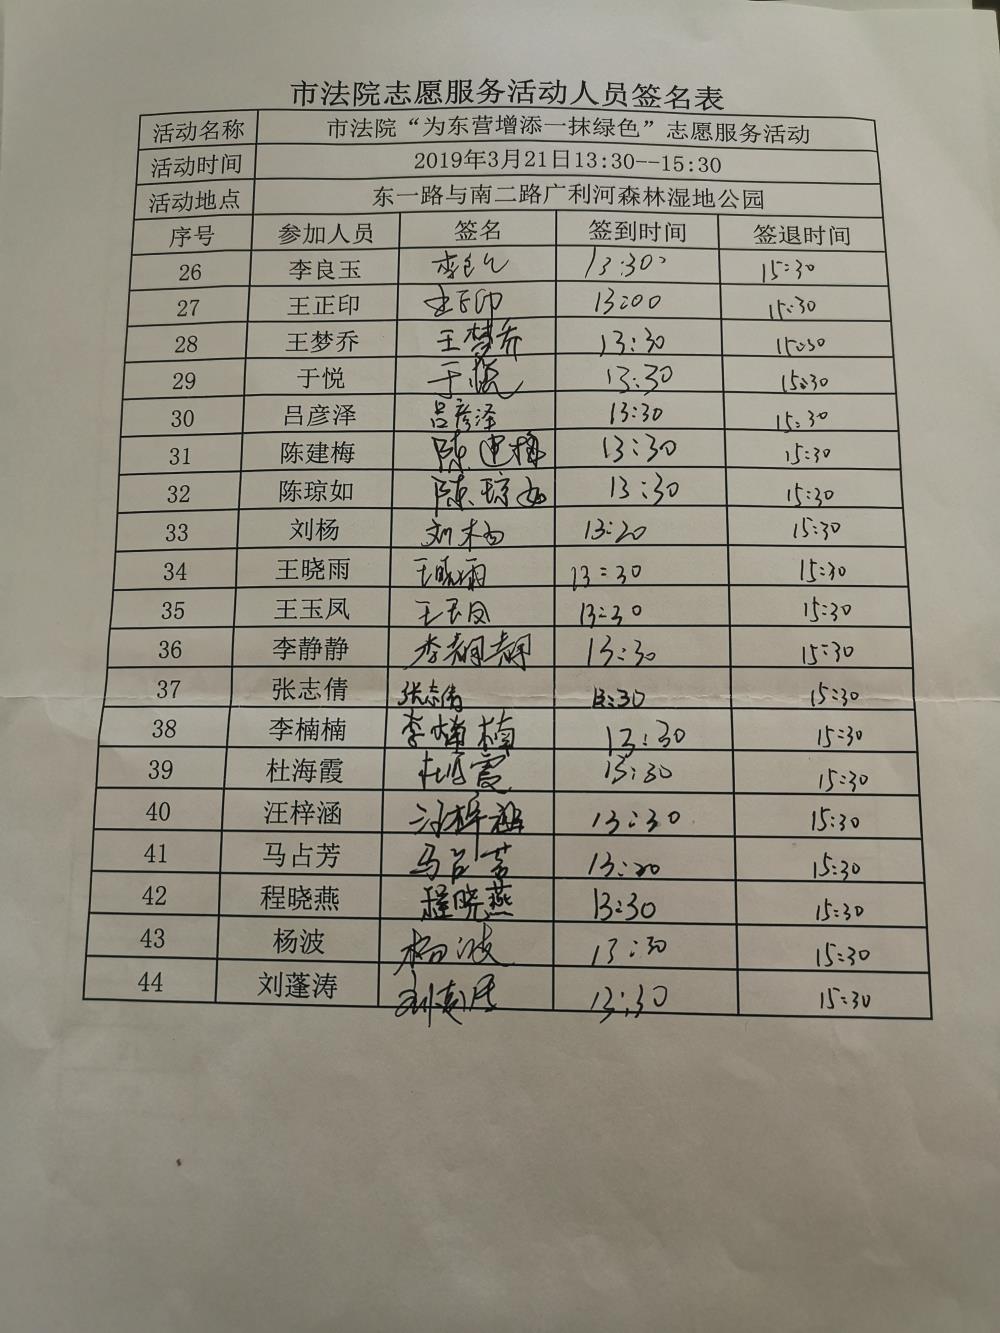 市法院志愿服务活动人员签名表
活动名称 市法院“为东营增添一抹绿色”志愿服务活动
活动时间 2019年3月21日13:30--15:30
活动地点 东一路与南二路广利河森林湿地公园
序号 参加人员 签名 签到时间 签退时间
26 李良玉 13:30 15:30
27 王正印 王正印 13:00 15:30
28 王梦乔 王梦乔 13:30 15:30
29 于悦 于悦 13:30 15:30
30 吕彦泽 吕彦泽 13:30 15:30
31 陈建梅 陈建梅 13:30 15:30
32 陈琼如 陈琼如 13:30 15:30
33 刘杨 刘杨 13:20 15:30
34 王晓雨 王晓雨 13:30 15:30
35 王玉凤 王玉凤 13:30 15:30
36 李静静 李静静 13:30 15:30
37 张志倩 张志倩 13:30 15:30
38 李楠楠 李楠楠 13:30 15:30
39 杜海霞 杜海霞 13:30 15:30
40 汪梓涵 汪梓涵 13:30 15:30
41 马占芳 马占芳 13:20 15:30
42 程晓燕 程晓燕 13:30 15:30
43 杨波 杨波 13:30 15:30
44 刘蓬涛 13:30 15:30